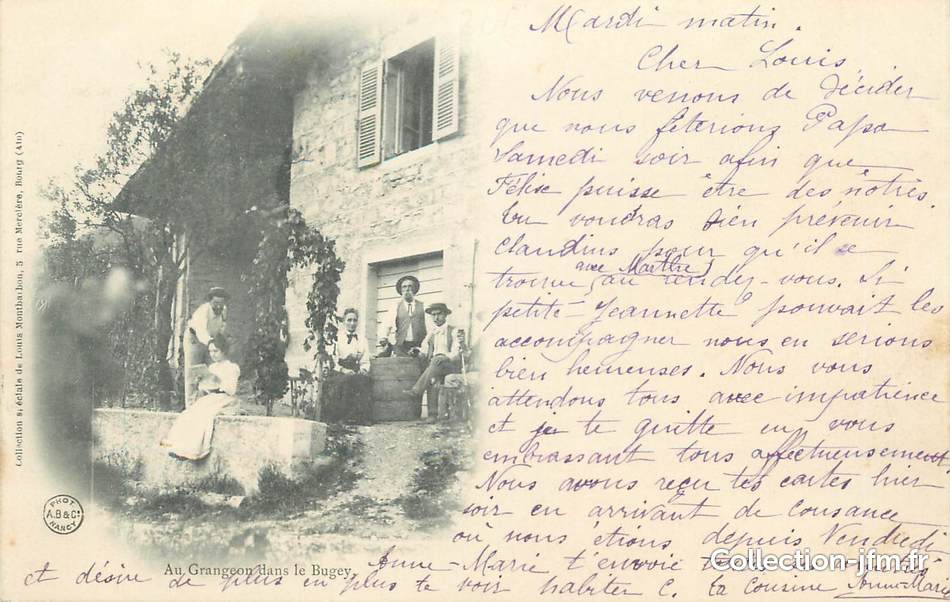 Mardi matin.
Cher Louis,
Nous venons de décider
que nous fêterions Papa
Samedi soir afin que
Félix puisse être des nôtres.
Tu voudras bien prévenir
Claudius pour qu'il se
trouve (avec Marthe) au rendez-vous. Si
petite-Jeannette pouvait les
accompagner nous en serions
bien heureuses. Nous vous
attendons tous avec impatience
et je te quitte en vous
embrassant tous affectueusement
Nous avons reçu tes cartes hier
soir en arrivant de Cousance
où nous étions depuis Vendredi
Anne-Marie t'envoie
et désire de plus en plus te voir habiter C. ta cousine Anne-Marie
Au Grangeon dans le Bugey.
Collection spéciale de Louis Montbarbon, 5 rue Mercière, Bourg (Ain)
PHOT.
A.B & Cie
NANCY
Collection-jfm.fr